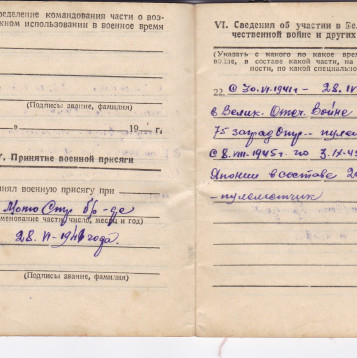 пределение командования части о воз-
жном использовании в военное время
(Подписи звание, фамилия)
» 194 г.
V. Принятие военной присяги
нял военную присягу при
Мото Стр. бр-де
менование части число, месяц и год)
28. VI-1941 года.
(Подписи звание, фамилия)
VI. Сведения об участии в Ве
чественной войне и других
(Указать с какого по какое врем
войне, в составе какой части, на
ности, по какой специально
22. с 30.VI-1941г - 28.IV
в Велик. Отеч. Войне
75 заград Отр. - пулем
с 8.VIII-1945г. по 3.IX-45
Японии в составе 2
пулеметчик